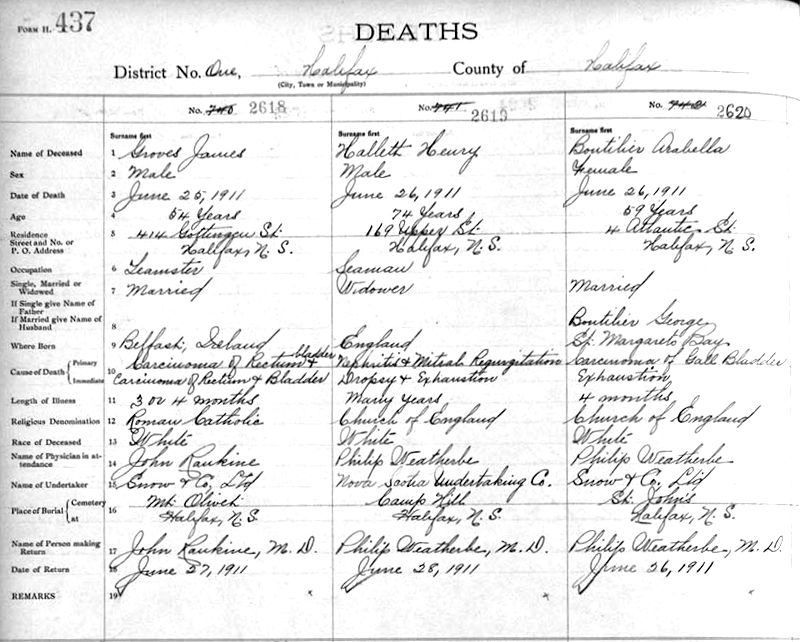 FORM H. 437
DEATHS
District No. One, Halifax County of Halifax
(City, Town or Municipality)
No. 740 2618 No. 741 2619 No. 742 2620
Surname first Surname first Surname first
Name of Deceased 1 Groves James Halleth Henry Boutilier Arabella
Sex 2 Male Male Female
Date of Death 3 June 25, 1911 June 26, 1911 June 26, 1911
Age 4 54 Years 74 Years 59 Years
Residence 5 414 Gottingen St. 169 Upper St. 4 Atlantic St.
Street and No. or
P. O. Address Halifax, N. S. Halifax, N. S. Halifax, N. S.
Occupation 6 Teamster Seaman
Single, Married or
Widowed 7 Married Widower Married
If Single give Name of
Father
If Married give Name of
Husband 8 Boutilier George
Where Born 9 Belfast, Ireland England St. Margarets Bay
Cause of Death Primary 10 Carcinoma of Rectum & bladder Nephritis & Mitral Regurgitation Carcinoma of Gall Bladder
Immediate Carcinoma of Rectum & Bladder Dropsy & Exhaustion Exhaustion
Length of Illness 11 3 or 4 months Many Years 4 months
Religious Denomination 12 Roman Catholic Church of England Church of England
Race of Deceased 13 White White White
Name of Physician in at-
tendance 14 John Rankine Philip Weatherbe Philip Weatherbe
Name of Undertaker 15 Snow & Co, Ltd Nova Scotia Undertaking Co. Snow & Co, Ltd
Place of Burial Cemetery 16 Mt. Olivet Camp Hill St. John's
at Halifax, N. S. Halifax, N. S. Halifax, N. S.
Name of Person making
Return 17 John Rankine, M. D. Philip Weatherbe, M. D. Philip Weatherbe, M. D.
Date of Return 18 June 27, 1911 June 28, 1911 June 26, 1911
REMARKS 19